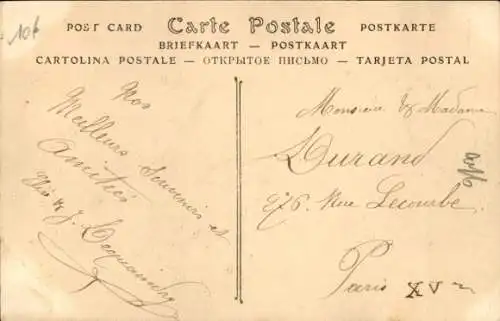 106
POST CARD Carte Postale POSTKARTE
BRIEFKAART — POSTKAART
CARTOLINA POSTALE — ОТКРЫТОЕ ПИСЬМО — TARJETA POSTAL
Nos
Meilleurs Souvenirs et
Amitiés
Monsieur & Madame
Durand
276. Rue Lecourbe
Paris XVe